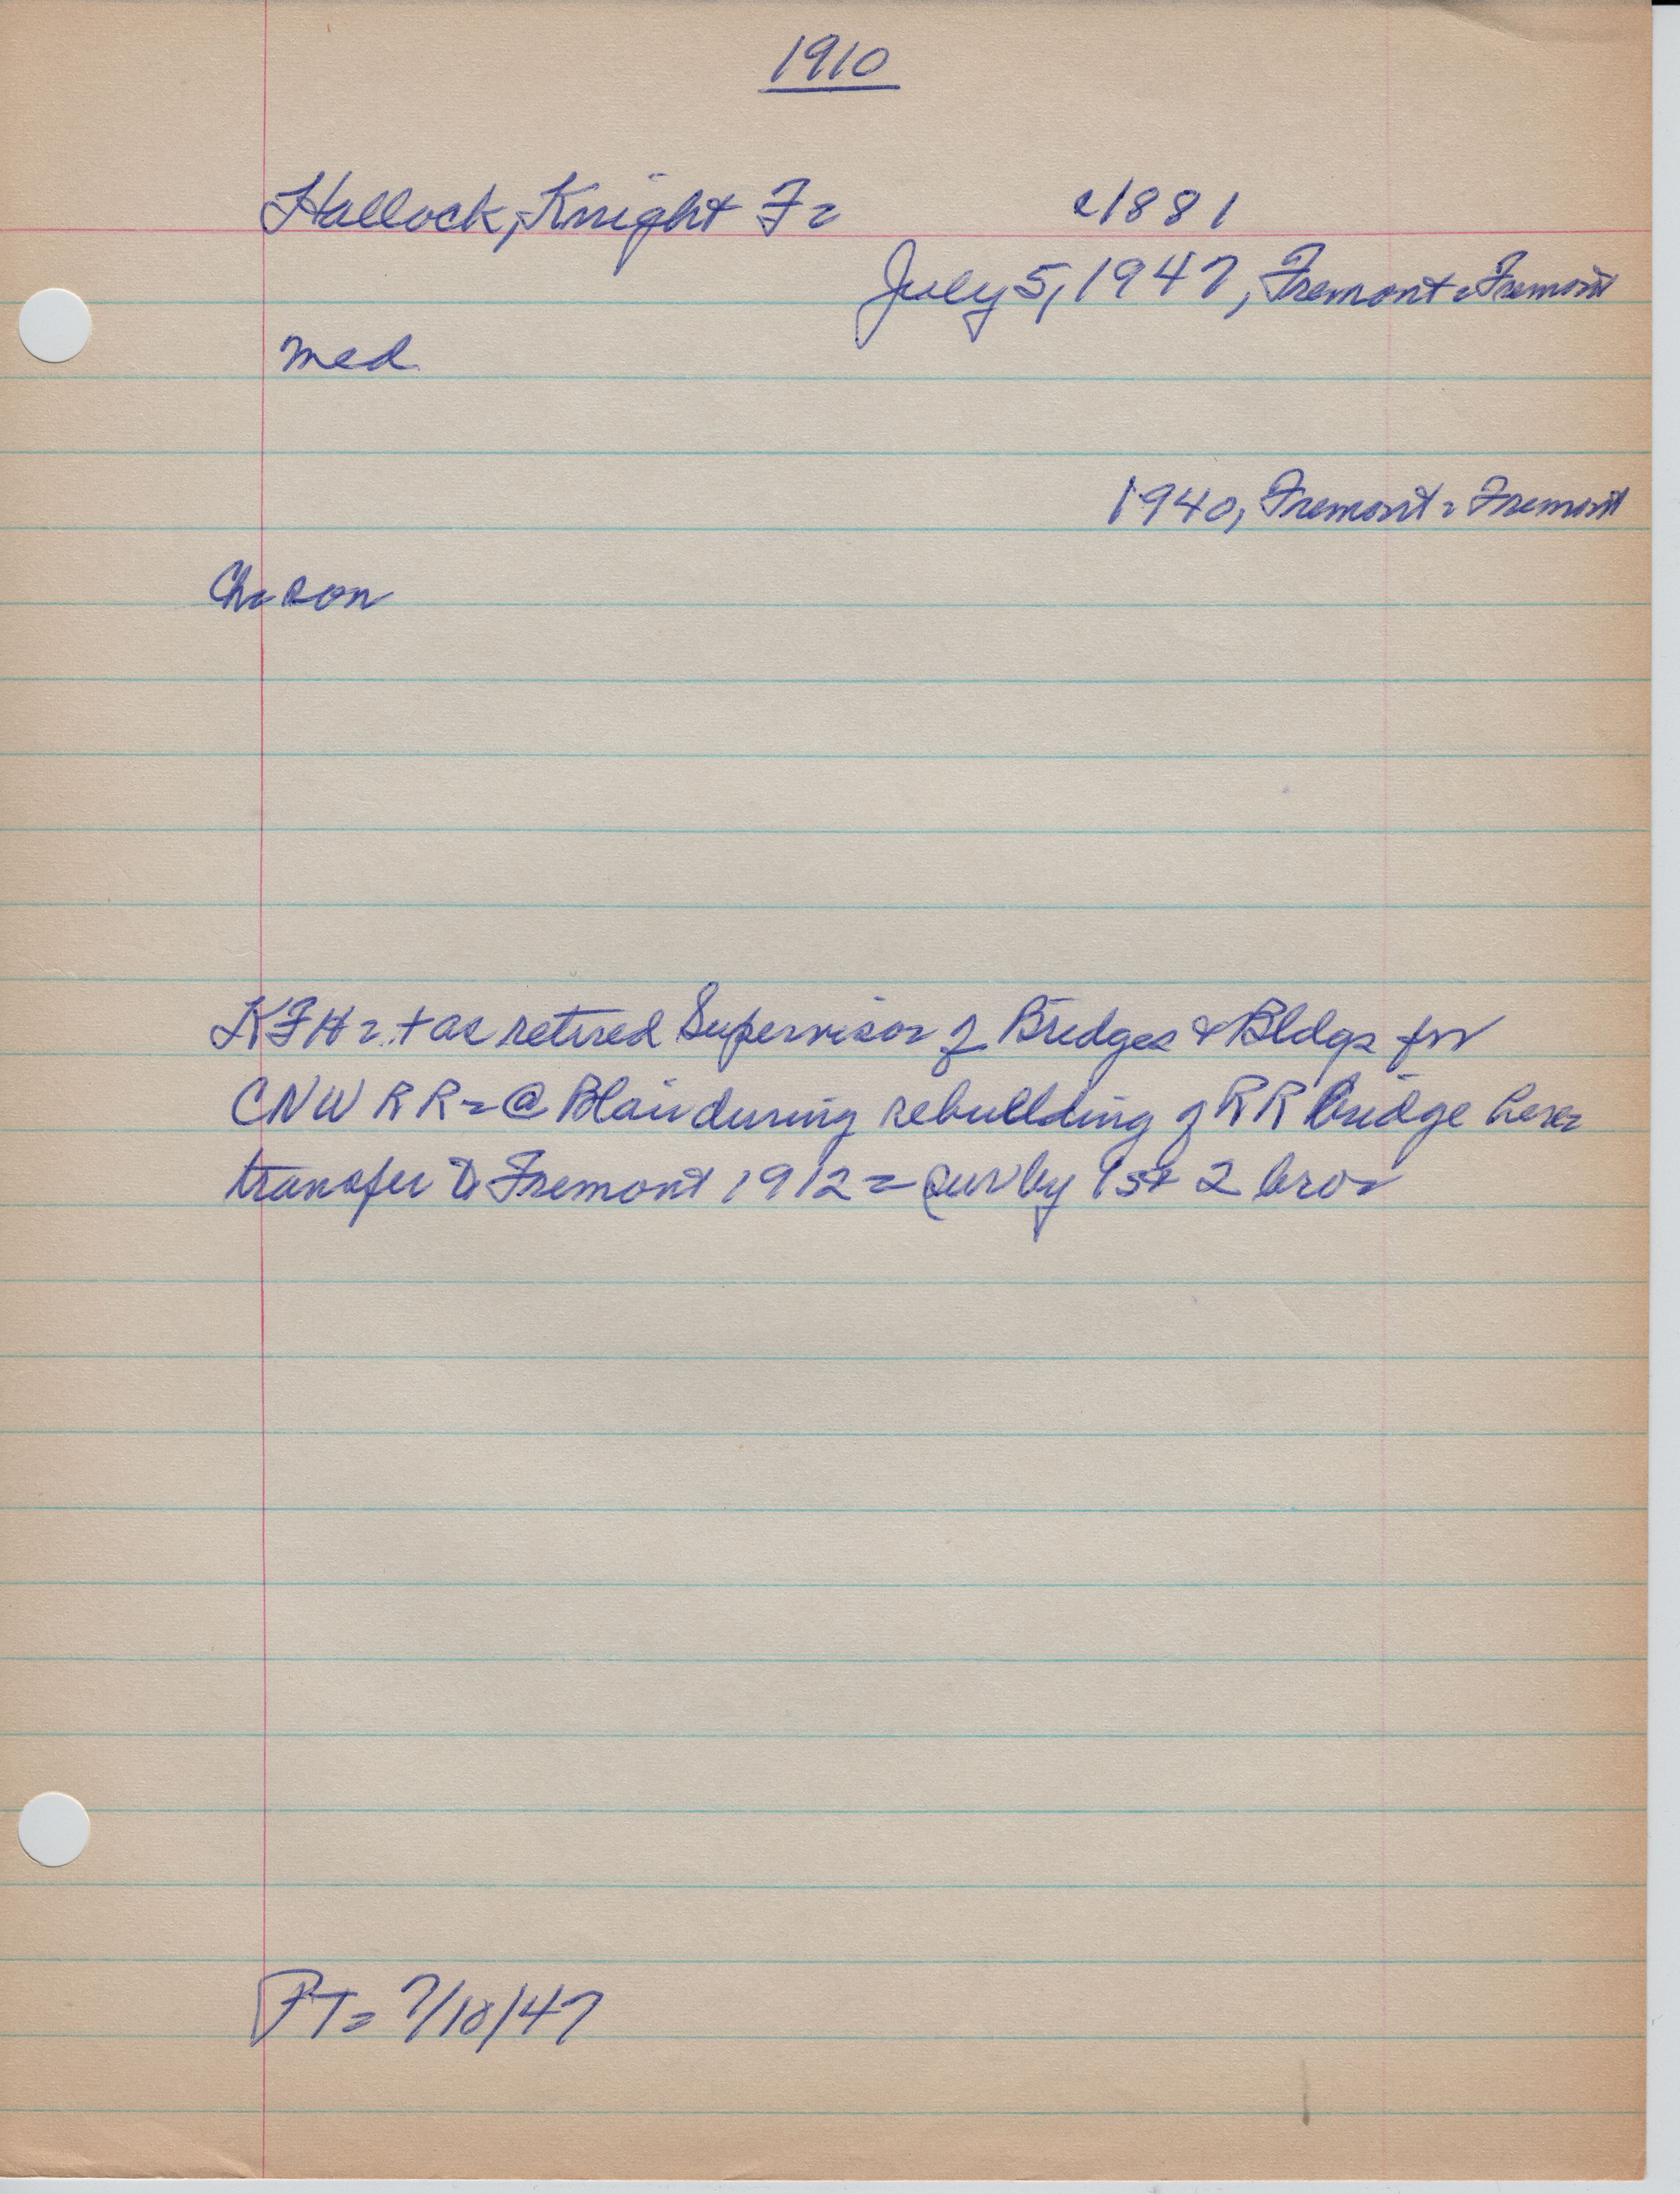 1910
Hallock, Knight F= c1881
July 5, 1947, Fremont=Fremont
med
1940, Fremont=Fremont
Ch= son
KFH=+ as retired Supervisor of Bridges & Bldgs for
CNW RR=@ Blair during rebuilding of RR bridge here=
transfer to Fremont 1912= sur by 1st 2 bro=
PT= 7/10/47